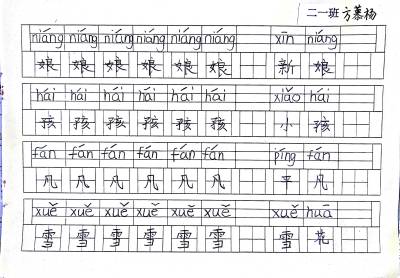 二一班 方慕杨
niáng niáng niáng niáng niáng niáng xīn niáng
娘 娘 娘 娘 娘 娘 新 娘
hái hái hái hái hái hái xiǎo hái
孩 孩 孩 孩 孩 孩 小 孩
fán fán fán fán fán fán píng fán
凡 凡 凡 凡 凡 凡 平 凡
xuě xuě xuě xuě xuě xuě xuě huā
雪 雪 雪 雪 雪 雪 雪 花